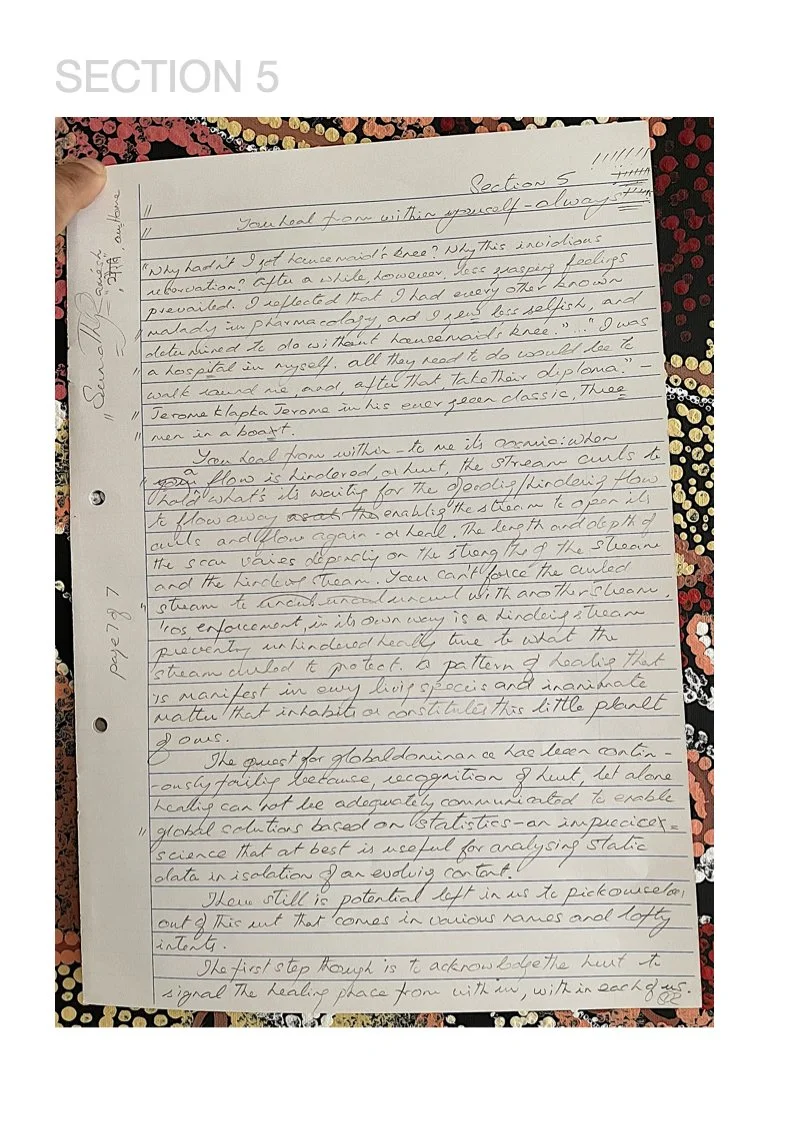 SECTION 5
Section 5
You heal from within yourself - always
"Why hadn't I got housemaid's knee? Why this invidious
reservation? After a while, however, less grasping feelings
prevailed. I reflected that I had every other known
malady in pharmacology, and I grew less selfish, and
determined to do without housemaid's knee."..." I was
a hospital in myself. all they need to do would be to
walk round me, and, after that take their diploma." -
Jerome Klapka Jerome in his ever green classic, Three
men in a boat.
You heal from within - to me its cosmic: when
a flow is hindered, or hurt, the stream curls to
hold what's its waiting for the hindering flow
to flow away enabling the stream to open its
curls and flow again - or heal. The length and depth of
the scar varies depending on the strength of the stream
and the hindering stream. You can't force the curled
stream to uncurl with another stream.
'cos enforcement, in its own way is a hindering stream
preventing unhindered healing time to what the
stream curled to protect. A pattern of healing that
is manifest in every living species and inanimate
matter that inhabits or constitutes this little planet
of ours.
The quest for global dominance has been contin-
-ously failing because, recognition of hurt, let alone
healing can not be adequately communicated to enable
global solutions based on statistics - an imprecise
science that at best is useful for analysing static
data in isolation of an evolving content.
There still is potential left in us to pick ourselves
out of this rut that comes in various names and lofty
intents.
The first step though is to acknowledge the hurt to
signal the healing phase from with in, with in each of us.
page 7 of 7